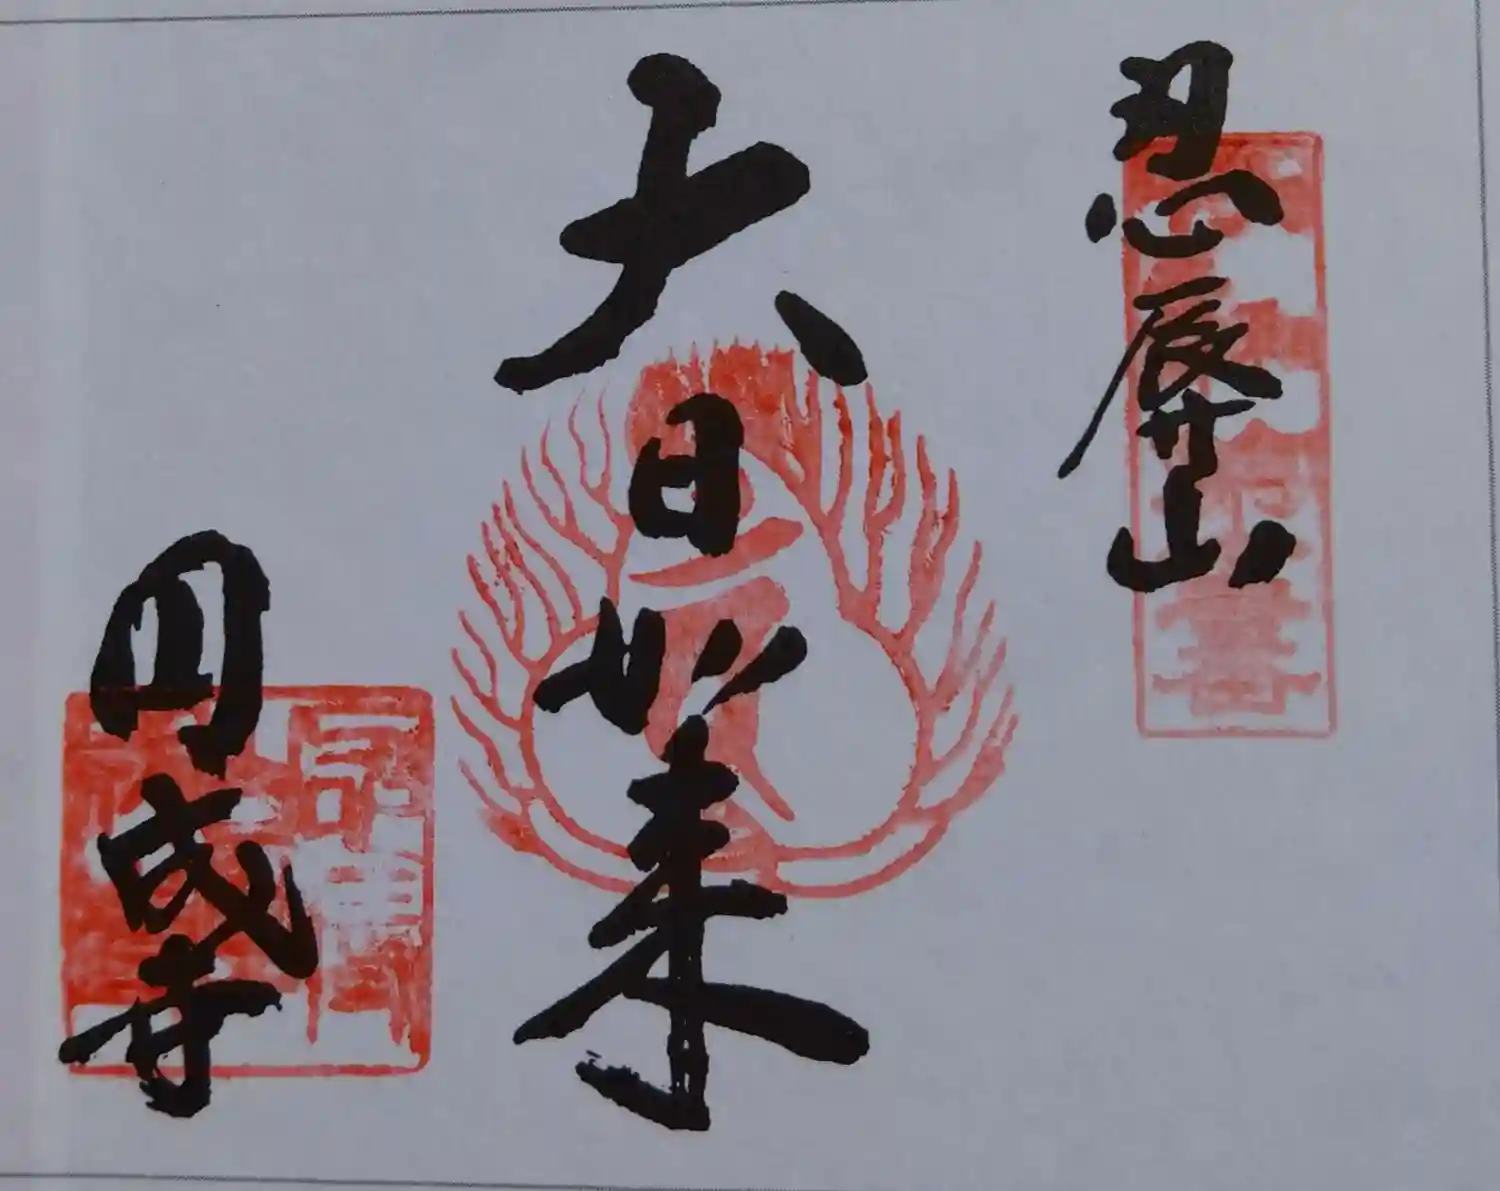 忍辱山
大日如来
円成寺